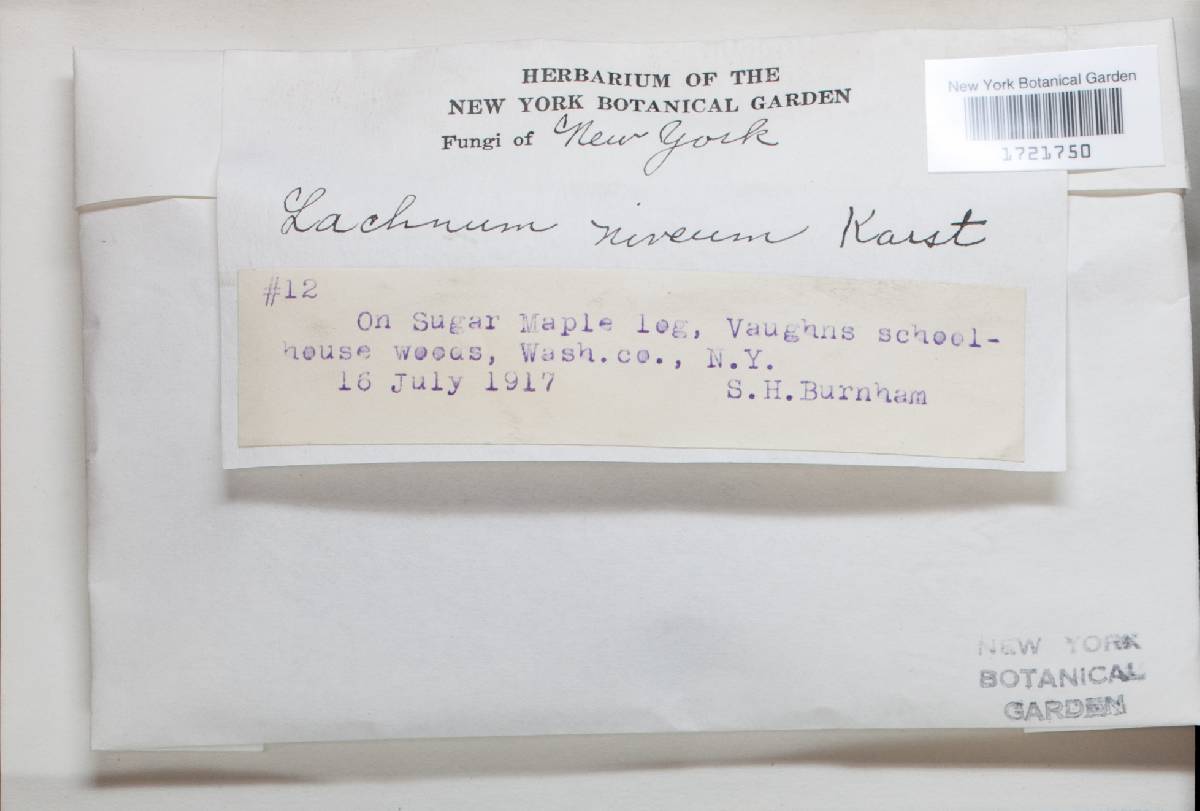 HERBARIUM OF THE
NEW YORK BOTANICAL GARDEN
Fungi of New York
New York Botanical Garden
1721750
Lachnum niveum Karst
#12
On Sugar Maple log, Vaughns school-
house woods, Wash.co., N.Y.
16 July 1917 S.H.Burnham
NEW YORK
BOTANICAL
GARDEN